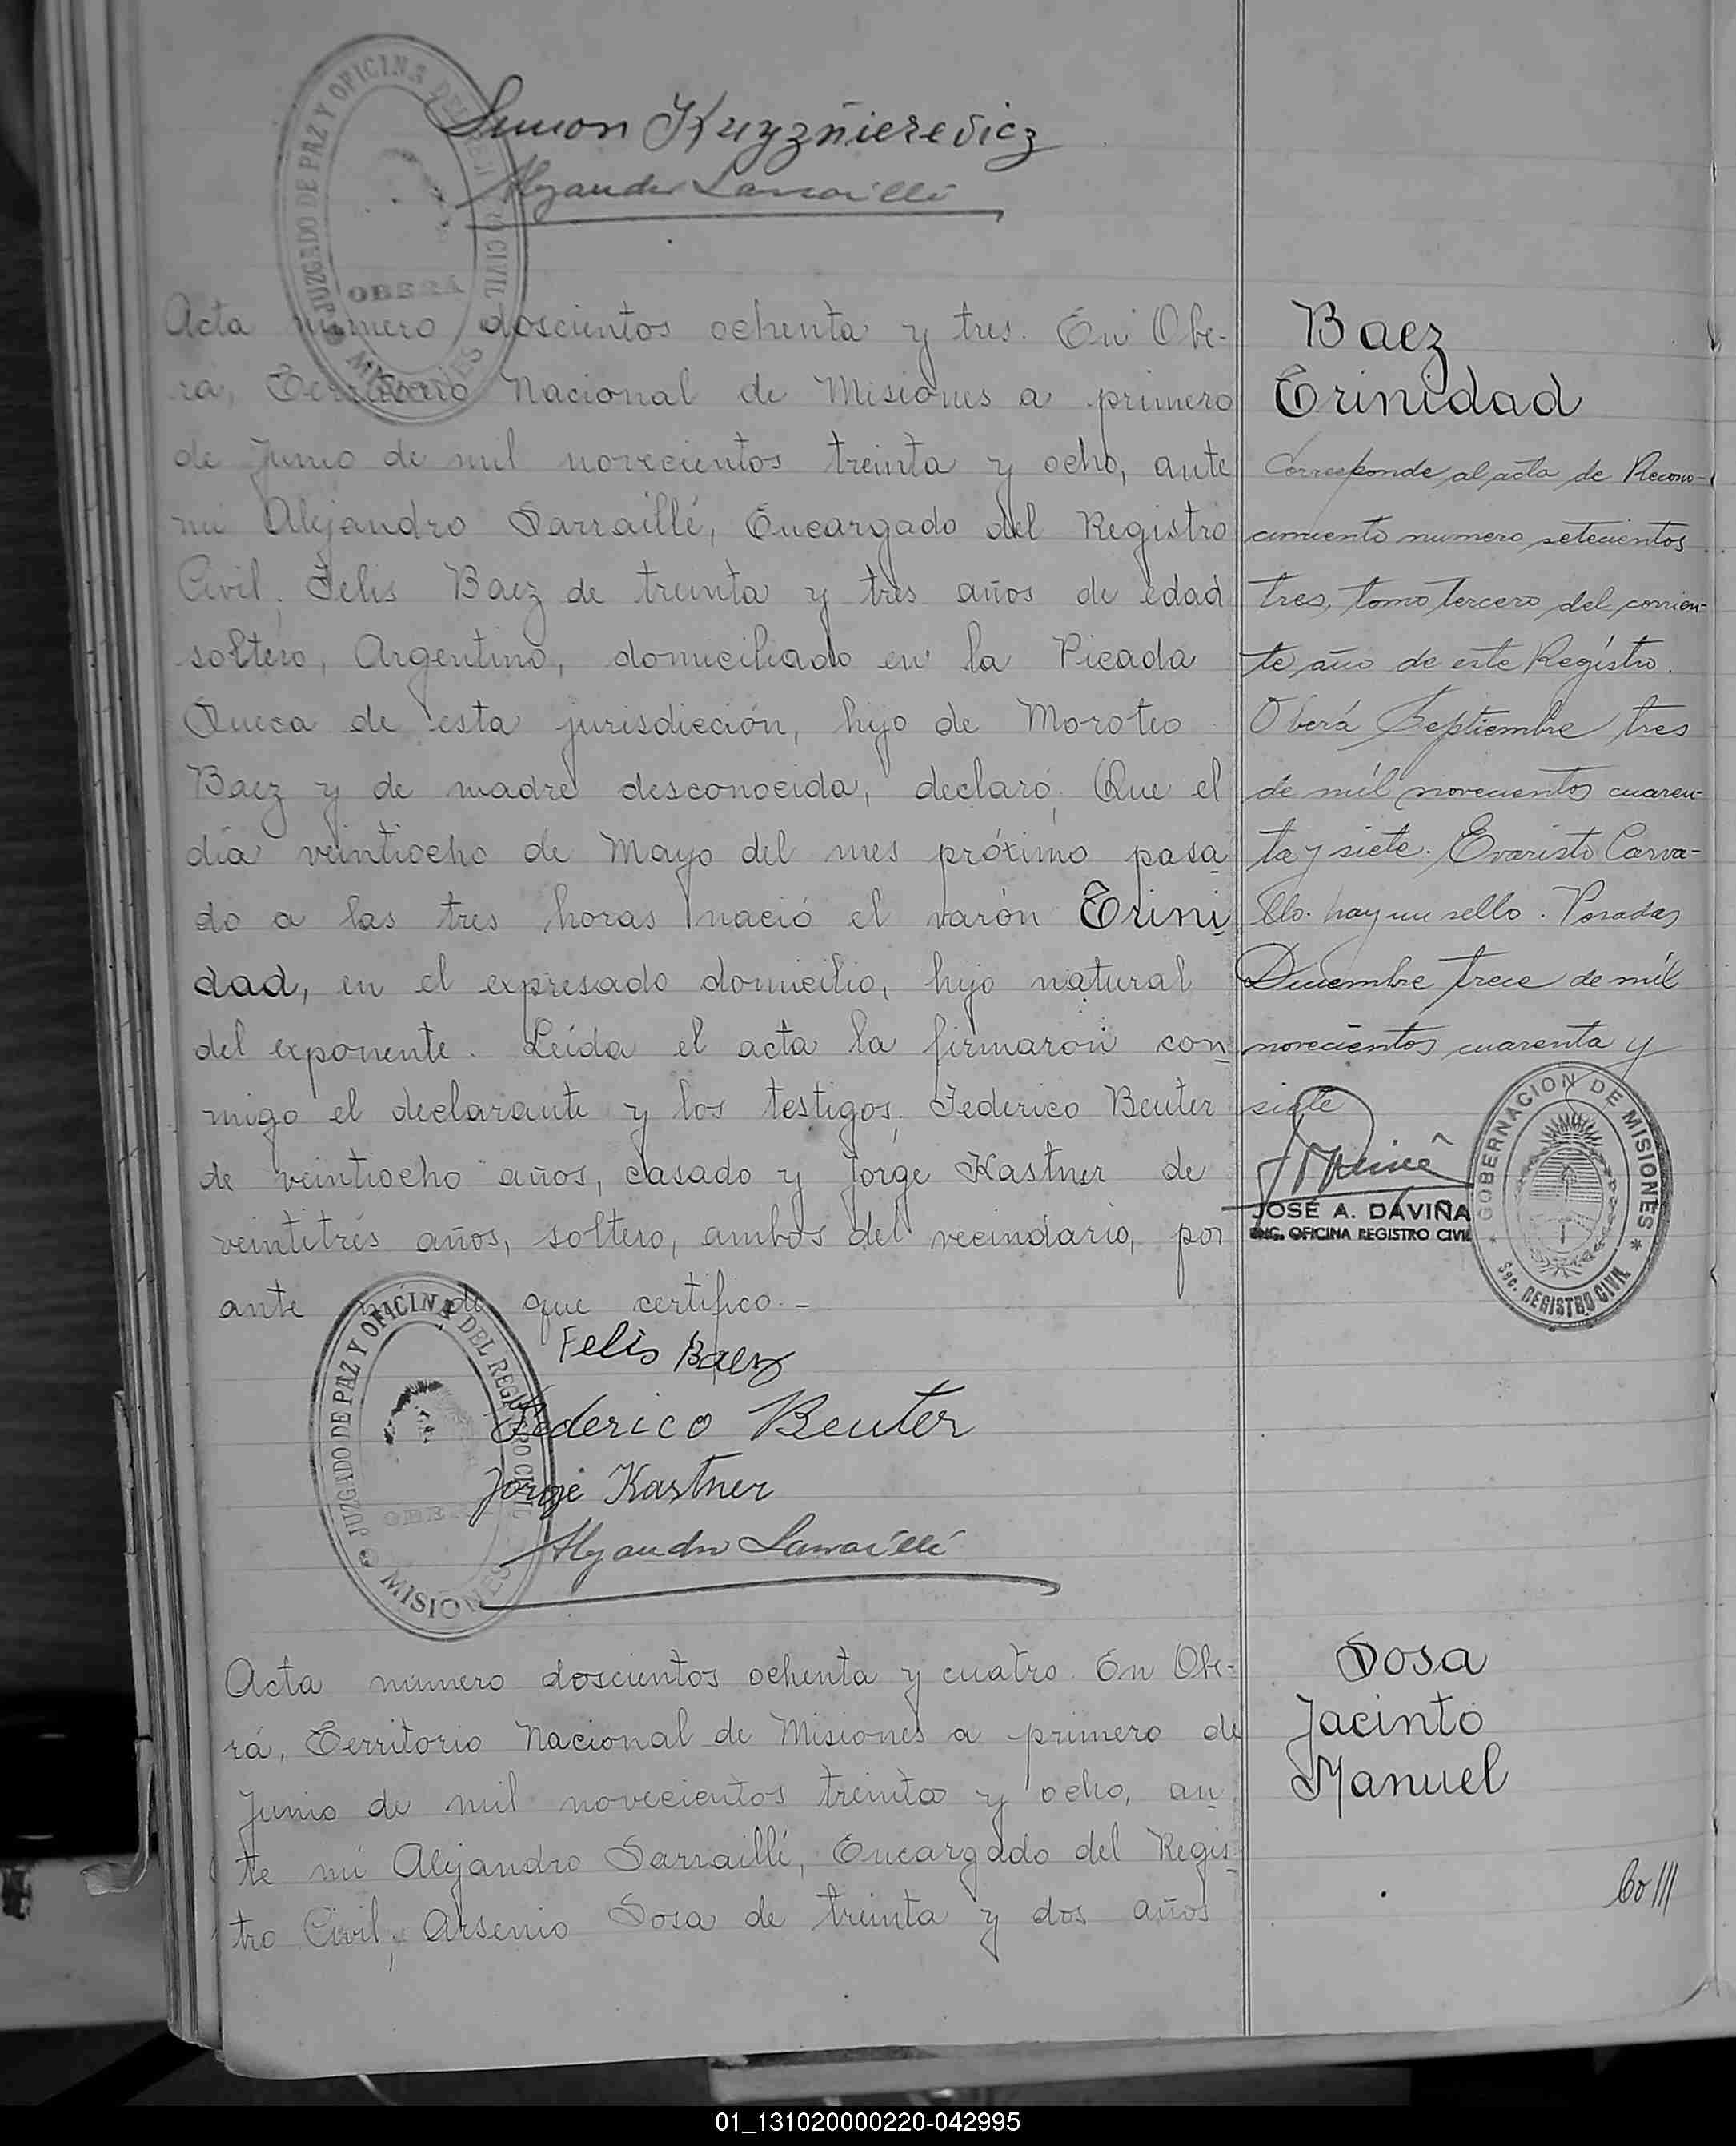 JUZGADO DE PAZ Y OFICINA DEL REGISTRO CIVIL
OBERÁ
MISIONES
Simon Kuyzñierevicz
Alejandro Sarraillé
Acta número doscientos ochenta y tres. En Obe-
rá, Territorio Nacional de Misiones a primero
de Junio de mil novecientos treinta y ocho, ante
mi Alejandro Sarraillé, Encargado del Registro
Civil, Felis Baez de treinta y tres años de edad
soltero, Argentino, domiciliado en la Picada
Sueca de esta jurisdicción, hijo de Moroteo
Baez y de madre desconocida, declaró: Que el
día veintiocho de Mayo del mes próximo pasa-
do a las tres horas nació el varón Trini
dad, en el expresado domicilio, hijo natural
del exponente. Leída el acta la firmaron con-
migo el declarante y los testigos, Federico Beuter
de veintiocho años, casado y Jorge Kastner de
veintitrés años, soltero, ambos del vecindario, por
ante mi de que certifico.-
Felis Baez
Federico Beuter
Jorge Kastner
Alejandro Sarraillé
JUZGADO DE PAZ Y OFICINA DEL REGISTRO CIVIL
OBERÁ
MISIONES
Baez
Trinidad
Corresponde al acta de Recono-
cimiento numero setecientos
tres, tomo tercero del corrien-
te año de este Registro.
Oberá Septiembre tres
de mil novecientos cuaren-
ta y siete. Evaristo Carva-
llo. hay un sello. Posadas
Diciembre trece de mil
novecientos cuarenta y
siete
JOSÉ A. DAVIÑA
ENC. OFICINA REGISTRO CIVIL
GOBERNACION DE MISIONES
Sec. REGISTRO CIVIL
Acta número doscientos ochenta y cuatro. En Obe-
rá, Territorio Nacional de Misiones a primero de
Junio de mil novecientos treinta y ocho, an
te mi Alejandro Sarraillé, Encargado del Regis-
tro Civil, Arsenio Sosa de treinta y dos años
Sosa
Jacinto
Manuel
01_131020000220-042995